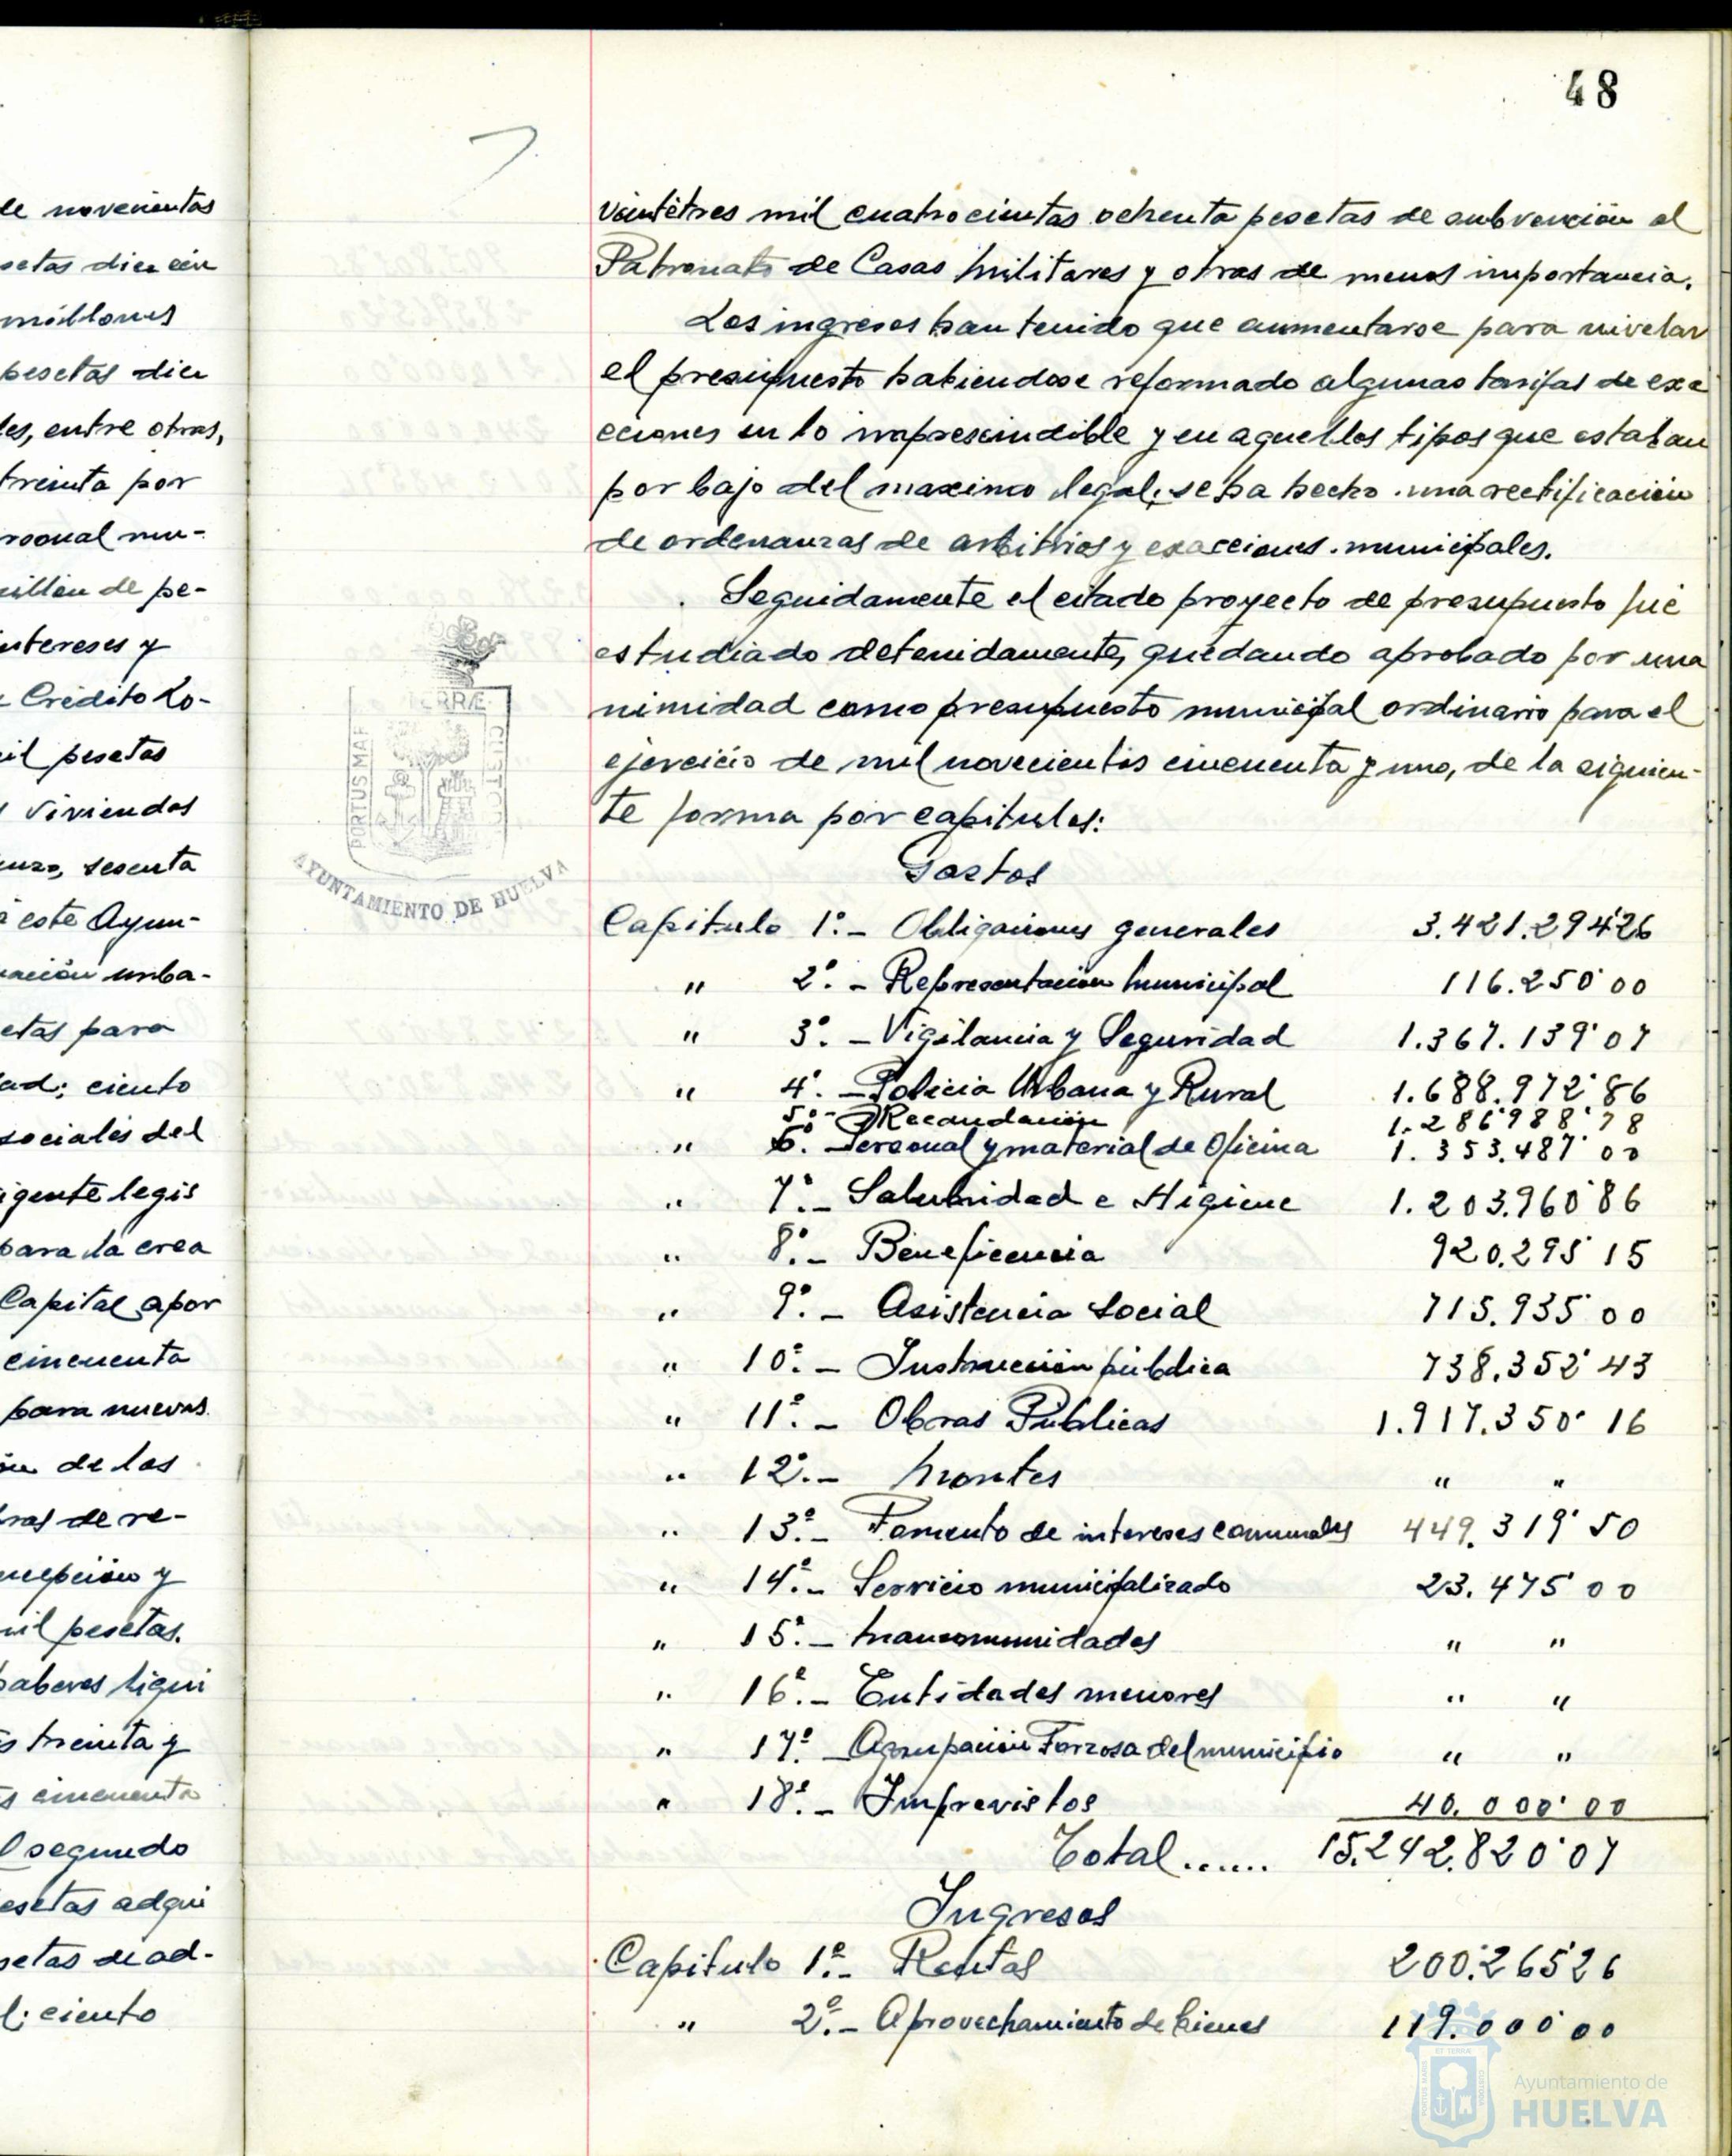 48
le novecientas
setas diez cén
millones
pesetas diez
les, entre otras,
treinta por
rsonal mu-
millón de pe-
intereses y
Crédito Lo-
il pesetas
viviendas
sesenta
a este Ayun-
urba-
etas para
ad; ciento
sociales del
igente legis
para la crea
Capital apor
cincuenta
para nuevas
de las
ras de re-
cepción y
mil pesetas.
haberes liqui
s treinta y
s cincuenta
l segundo
esetas adqui
setas de ad-
l; ciento
veintetres mil cuatrocientas ochenta pesetas de subvención al
Patronato de Casas Militares y otras de menos importancia.
Los ingresos han tenido que aumentarse para nivelar
el presupuesto habiendose reformado algunas tarifas de exa
cciones en lo imprescindible y en aquellos tipos que estaban
por bajo del maximo legal, se ha hecho una rectificación
de ordenanzas de arbitrios y exacciones municipales.
Seguidamente el citado proyecto de presupuesto fué
estudiado detenidamente, quedando aprobado por una
nimidad como presupuesto municipal ordinario para el
ejercicio de mil novecientos cincuenta y uno, de la siguien-
te forma por capitulos:
Gastos
Capitulo 1º.- Obligaciones generales 3.421.294'26
" 2º.- Representación Municipal 116.250'00
" 3º.- Vigilancia y Seguridad 1.367.139'07
" 4º.- Policia Urbana y Rural 1.688.972'86
5º- Recaudación 1.286988'78
" 6º. Personal y material de Oficina 1.353.487'00
" 7º.- Salubridad e Higiene 1.203.960'86
" 8º.- Beneficencia 920.295'15
" 9º.- Asistencia Social 715.935'00
" 10º.- Instrucción pública 738.352'43
" 11º.- Obras Públicas 1.917.350'16
" 12º.- Montes " "
" 13º.- Fomento de intereses comunales 449.319'50
" 14º.- Servicio municipalizado 23.475'00
" 15º.- Mancomunidades " "
" 16º.- Entidades menores " "
" 17º.- Agrupación Forzosa del municipio " "
" 18º.- Imprevistos 40.000'00
Total...... 15.242.820'07
Ingresos
Capitulo 1º.- Rentas 200.265'26
" 2º.- Aprovechamiento de bienes 119.000'00
TERRÆ
PORTUS MAR
CUSTOD
AYUNTAMIENTO DE HUELVA
Ayuntamiento de
HUELVA